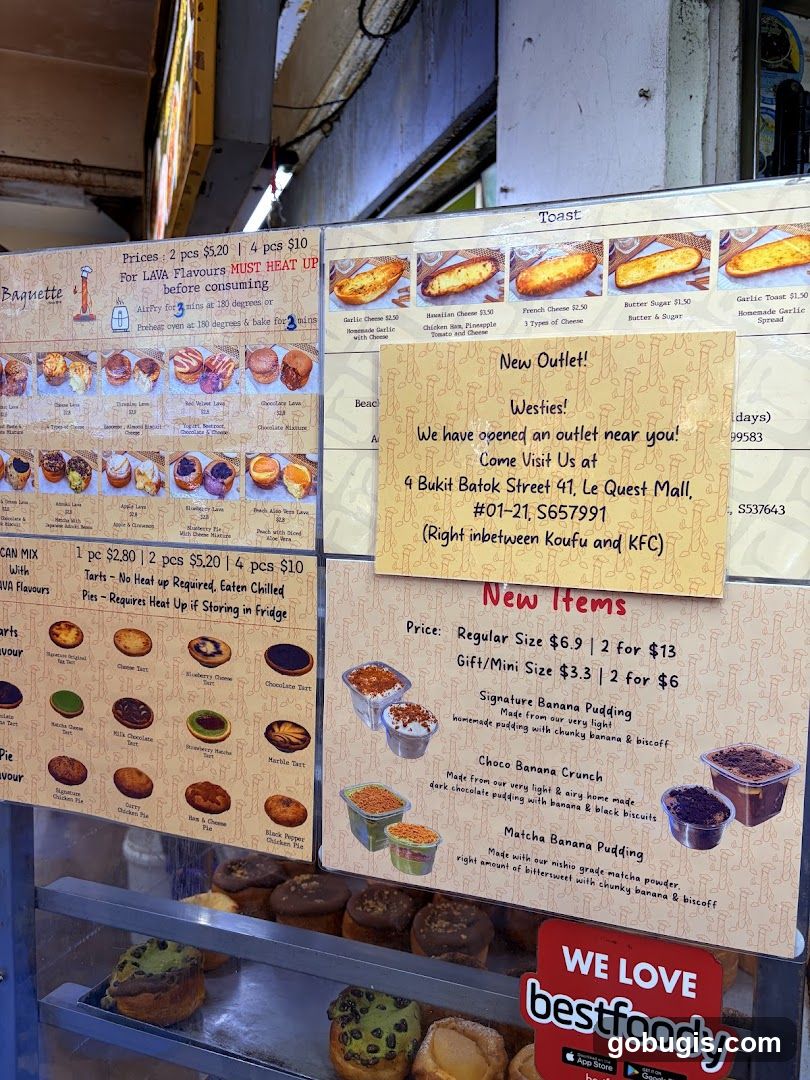 Baguette
Prices : 2 pcs $5.20 | 4 pcs $10
For LAVA Flavours MUST HEAT UP
before consuming
AirFry for 3 mins at 180 degrees or
Preheat oven at 180 degrees & bake for 3 mins
Lava
Cheese Lava
Tiramisu Lava
Red Velvet Lava
Chocolate Lava
$2.8
$2.8
$2.8
$2.8
4 Types of Cheese
Yogurt, Beetroot,
Chocolate & Cheese
Chocolate Mixture
Azuki Lava
Apple Lava
Blueberry Lava
Peach Aloe Vera Lava
$2.8
$2.8
$2.8
$2.8
Matcha With
Japanese Adzuki Beans
Apple & Cinnamon
Blueberry Pie
With Cheese Mixture
Peach with Diced
Aloe Vera
CAN MIX
With
AVA Flavours
1 pc $2.80 | 2 pcs $5.20 | 4 pcs $10
Tarts - No Heat up Required, Eaten Chilled
Pies - Requires Heat Up if Storing in Fridge
arts
avour
Signature Original
Egg Tart
Cheese Tart
Blueberry Cheese
Tart
Chocolate Tart
Matcha Cheese
Tart
Milk Chocolate
Tart
Strawberry Matcha
Tart
Marble Tart
Pie
avour
Signature
Chicken Pie
Curry
Chicken Pie
Ham & Cheese
Pie
Black Pepper
Chicken Pie
Toast
Garlic Cheese $2.50
Homemade Garlic
with Cheese
Hawaiian Cheese $3.50
Chicken Ham, Pineapple
Tomato and Cheese
French Cheese $2.50
3 Types of Cheese
Butter Sugar $1.50
Butter & Sugar
Garlic Toast $1.50
Homemade Garlic
Spread
Beac
idays)
99583
, S537643
New Outlet!
Westies!
We have opened an outlet near you!
Come Visit Us at
4 Bukit Batok Street 41, Le Quest Mall,
#01-21, S657991
(Right inbetween Koufu and KFC)
New Items
Price: Regular Size $6.9 | 2 for $13
Gift/Mini Size $3.3 | 2 for $6
Signature Banana Pudding
Made from our very light
homemade pudding with chunky banana & biscoff
Choco Banana Crunch
Made from our very light & airy home made
dark chocolate pudding with banana & black biscuits
Matcha Banana Pudding
Made with our nishio grade matcha powder,
right amount of bittersweet with chunky banana & biscoff
WE LOVE
bestfoody
Download on the
App Store
GET IT ON
gobugis.com